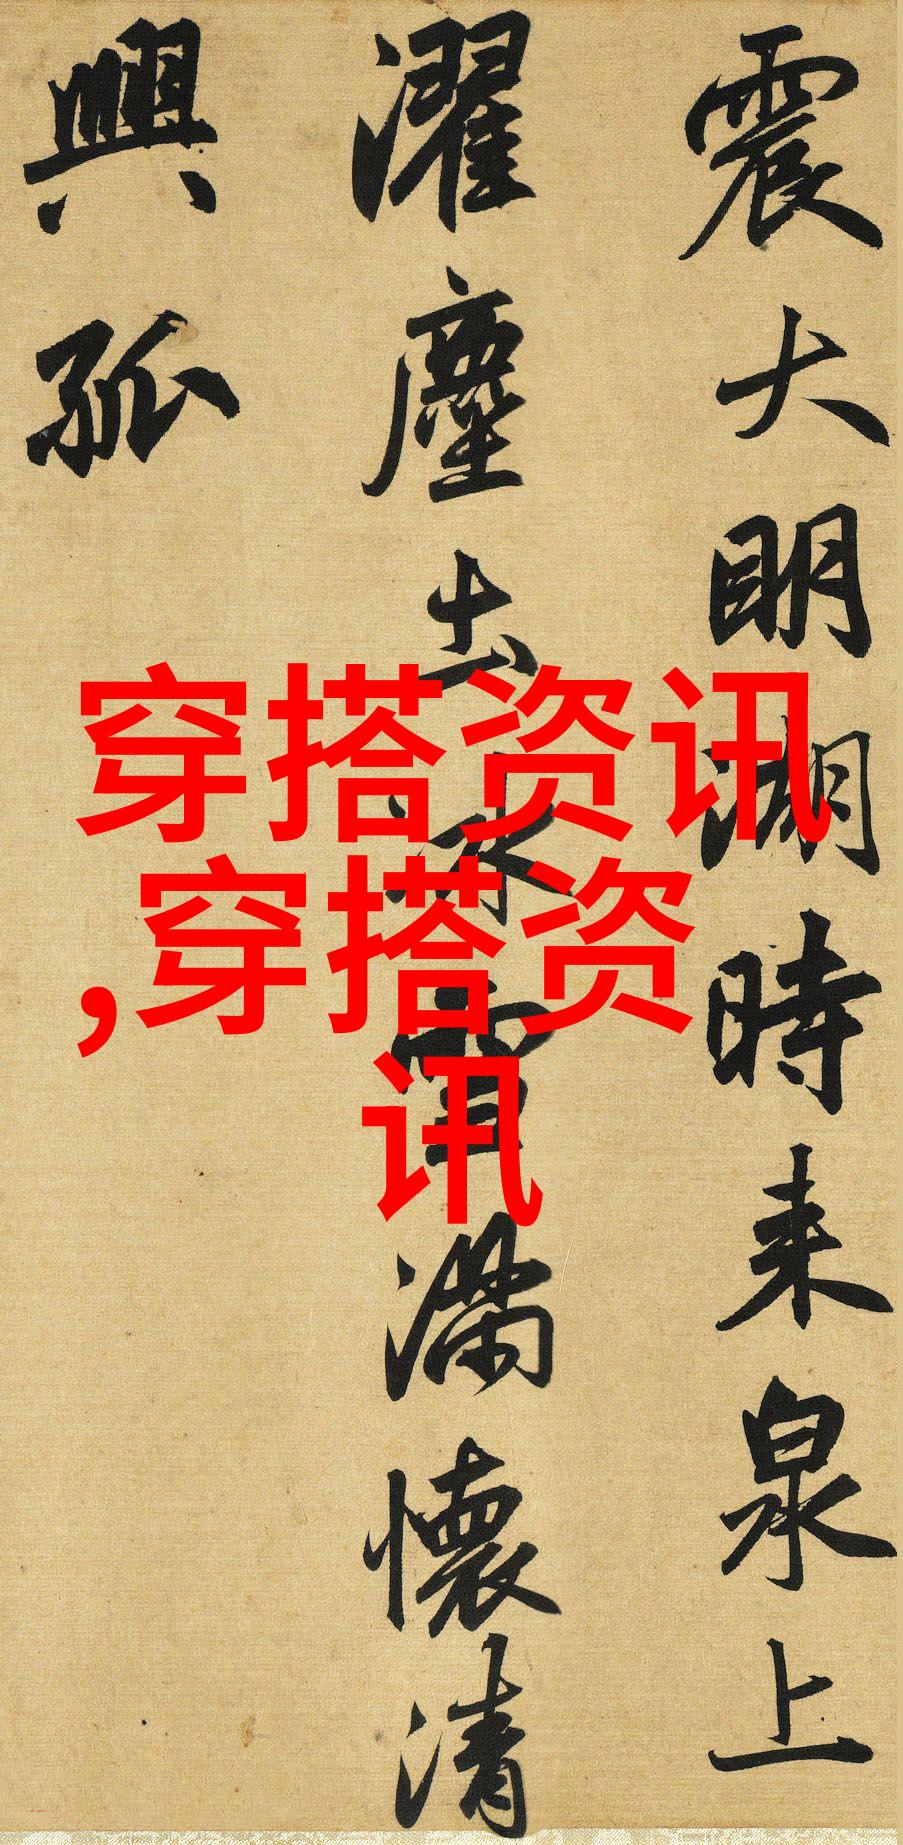 震大明湖時来泉上
濯塵土冰雪滿懷清
興孤
穿搭资讯
,穿搭资
讯